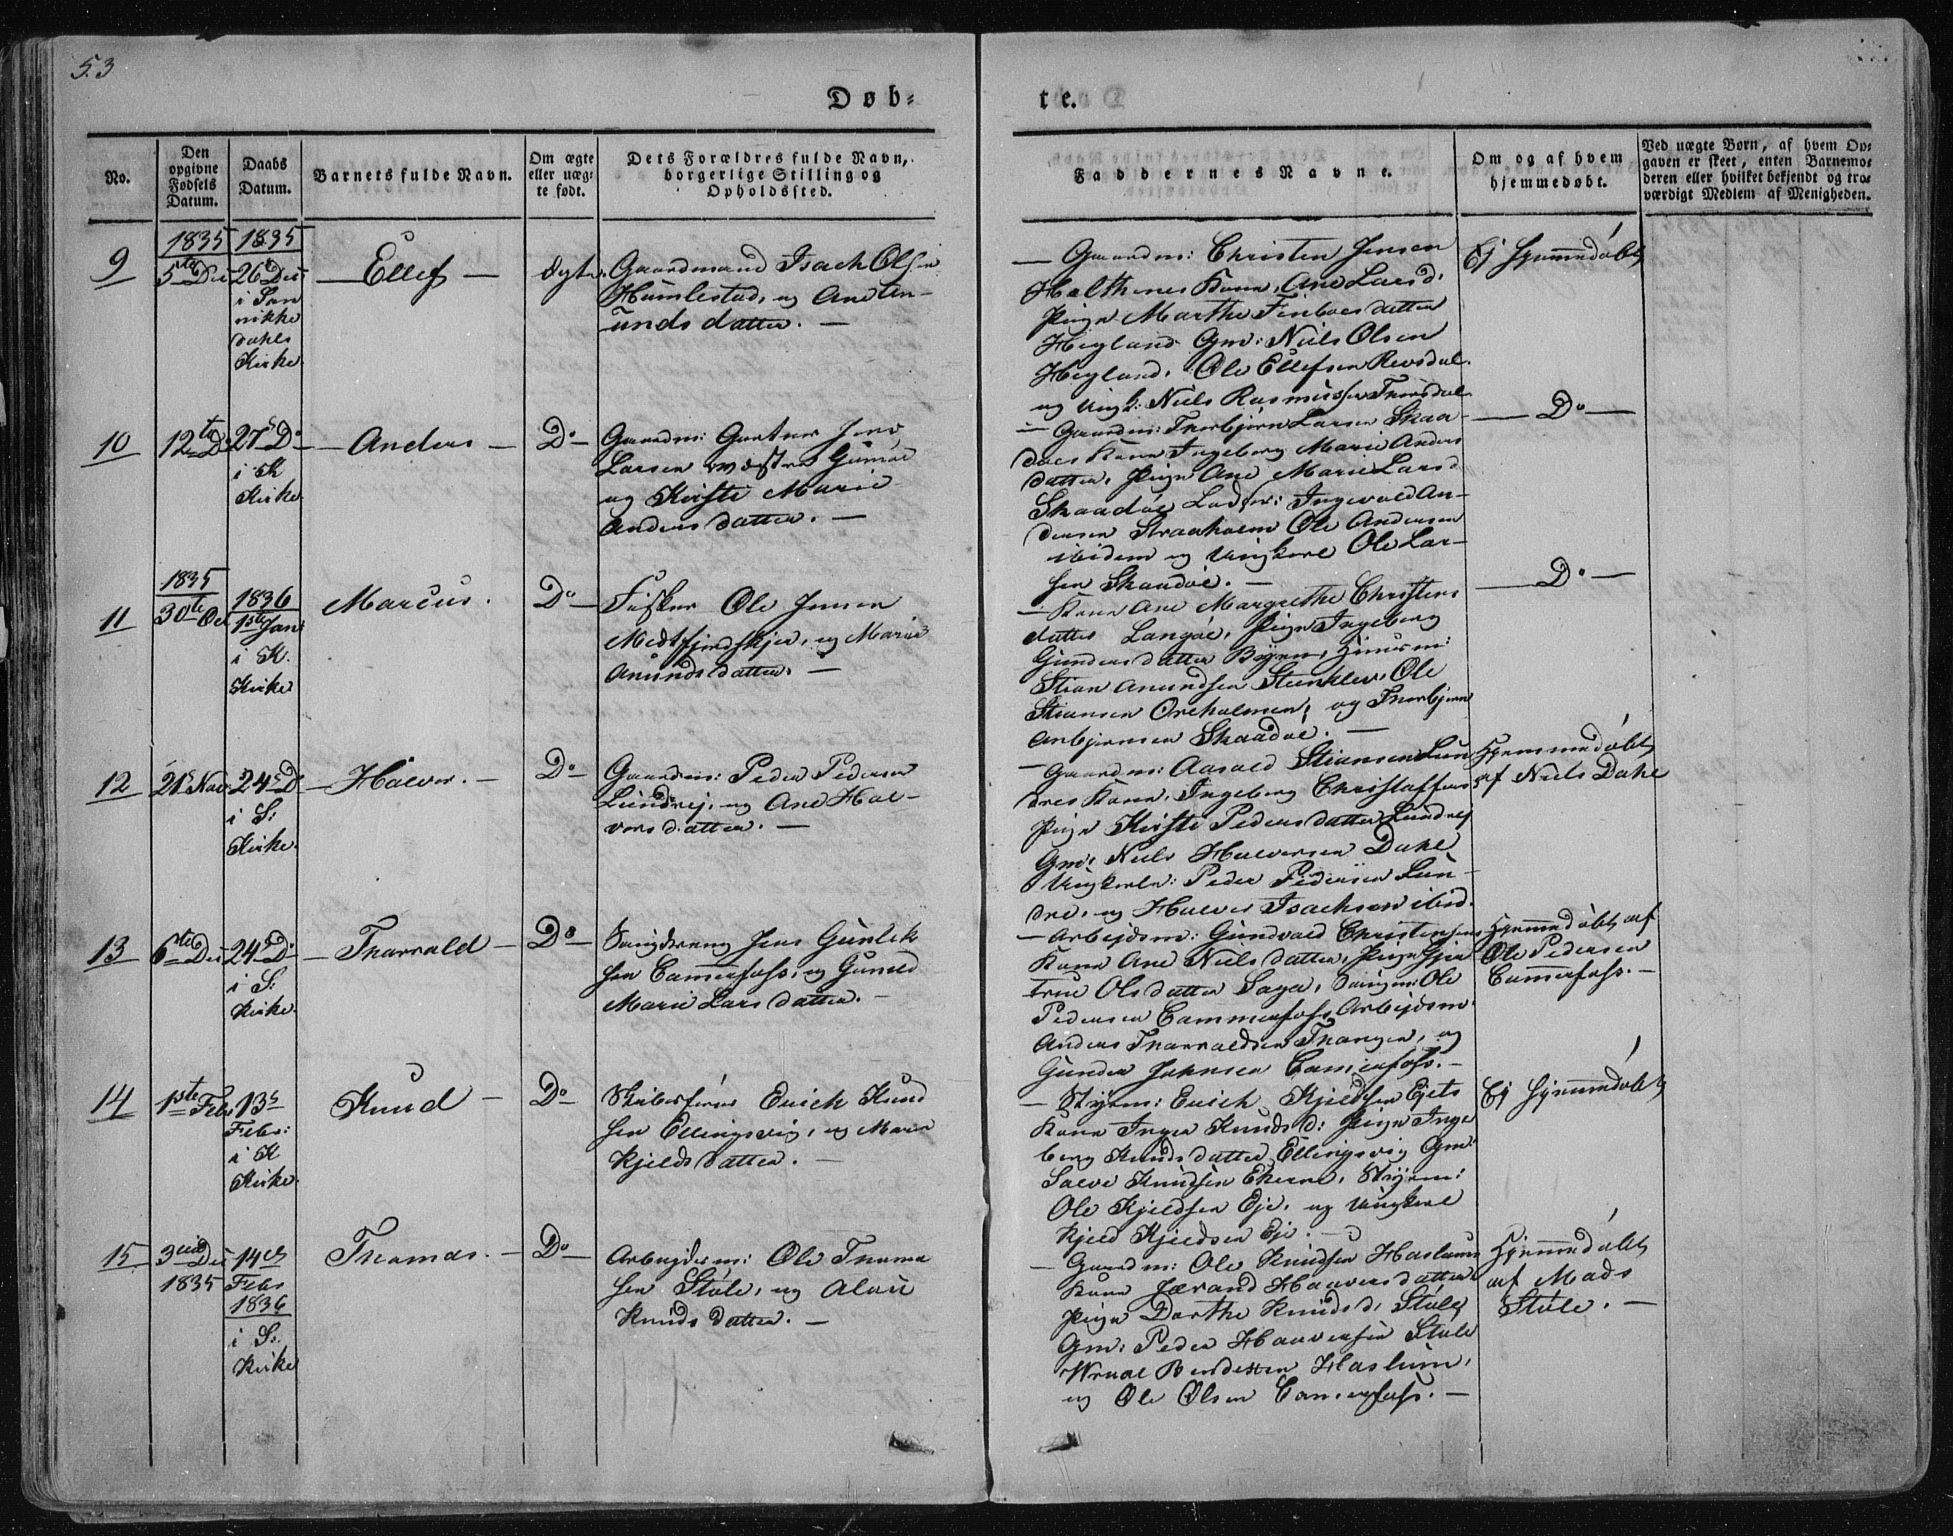 53
Døb-
te.
No.
Den
opgivne
Fødsels
Datum.
Daabs
Datum.
Barnets fulde Navn.
Om ægte
eller uæg-
te født.
Dets Forældres fulde Navn,
borgerlige Stilling og
Opholdssted.
Faddernes Navne.
Om og af hvem
hjemmedøbt.
Ved uægte Børn, af hvem Op-
gaven er skeet, enten Barnemo-
deren eller hvilket bekjendt og tro-
værdigt Medlem af Menigheden.
9
1835
5te Dec
1835
26 Dec
i San
nikke
dahls
Kirke
Ellef
Ægte
Gaardmand Isach Olsen
Humlestad, og Ane An-
unds datter.
Gaardm: Christen Jensen
Halthenes Kone, Ane Larsd.
Pige Marthe Finboes datter
Hegland Gm: Niels Olsen
Hegland, Ole Ellefsen Revsdal
og Ungk: Niels Rasmussen
Ej Hjemmedøbt
10
12te D
27 Do
i K
Kirke
Anders
Do
Gaardm: Jens
Larsen
og Kirsti Marie
Anders datter.
Gaardm: Thorbjørn Larsen Skaa-
døes Kone Ingeborg Marie Anders
datter, Pige Ane Marie Larsd
Skaadøe, Ingevald An-
dersen Straaholm Ole Andersen
ibidem og Ungkarl Ole Lar-
sen Skaadøe.
Do
11
1835
30te Oct
1836
1ste Jan
i K.
Kirke
Marcus.
Do
Fisker Ole Jensen
Midtfjordskjer, og Maria
Anunds datter.
Kone Ane Margrethe Christens
datter Langøe, Pige Ingeborg
Gunders datter
Stian Anundsen Stenklev, Ole
Stiansen Oreholmen, og Thorbjørn
Anbjørnsen Skaadøe.
Do
12
21 Nov
24 D
i S:
Kirke.
Halvor.
Do
Gaardm: Peder Pedersen
Lundrej, og Ane Hal-
vors datter.
Gaardm: Aasold Stiansen Lun
dres Kone, Ingeborg Christoffersd
Pige Kirsti Peders datter Lundrej
Gm: Niels Halvorsen Dahl
Ungkarle: Peder Pedersen Lun-
dre, og Halvor Isachsen ibid.
Hjemmedøbt
af Niels Dahl
13
6te Dec
24 Do
i S:
Kirke.
Tharrald
Do
Saugdreng Jens Gunlek
sen Cammerfoss, og Gunild
Marie Lars datter.
Arbejdsm: Gundvald Christensens
Kone Ane Niels datter, Pige Gjer
true Ols datter Saga, Ole
Pedersen Cammerfoss, Arbejdsm:
Anders Tharraldsen Tangen, og
Gunder Johnsen Camerfoss.
Hjemmedøbt af
Ole Pedersen
Camerfoss.
14
1ste Febr
13
Febr:
i K
Kirke.
Knud
Do
Skibsfører Erich Knud
sen Ellingsvig, og Maren
Kjelds datter.
Styrm: Erich Kjeldsen Ejets
Kone Inger Knudsd: Pige Inge
borg Knuds datter Ellingsvig Gm:
Salve Knudsen Ekerne, Styrm:
Ole Kjeldsen Eje, og Ungkarl
Kjeld Kjeldsen Eje.
Ej Hjemmedøbt
15
3die Dec
1835
14de
Febr
1836
i S:
Kirke
Thomas.
Do
Arbeydsm: Ole Thoma
sen Støle, og
Knuds datter.
Gaardm: Ole Knudsen Haslums
Kone Jærand Haavors datter
Pige Dorthe Knudsd, Støle,
Gm: Peder Haavorsen Støle
Haslum,
og Ole Olsen Camerfoss.
Hjemmedøbt
af Mads
Støle.